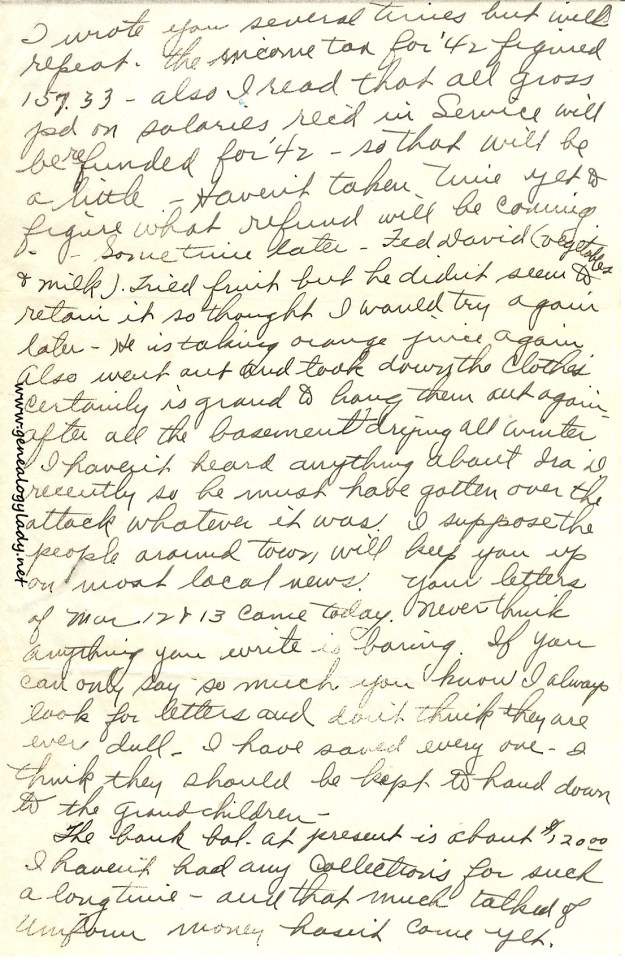 I wrote you several times but will
repeat. The income tax for '42 figured
157.33 - also I read that all gross
pd on salaries rec'd in Service will
be refunded for '42 - so that will be
a little - Haven't taken time yet to
figure what refund will be coming
. - Sometime later - Fed David (vegetables
& milk). Tried fruit but he didn't seem to
retain it so thought I would try again
later - He is taking orange juice again
Also went out and took down the clothes
Certainly is grand to hang them out again
after all the basement drying all winter
I haven't heard anything about Ira D
recently so he must have gotten over the
attack whatever it was. I suppose the
people around town, will keep you up
on most local news. Your letters
of Mar 12 & 13 came today. Never think
anything you write is boring. If you
can only say so much you know I always
look for letters and don't think they are
ever dull - I have saved every one - I
think they should be kept to hand down
to the grandchildren -
The bank bal. at present is about $12000
I haven't had any Collections for such
a long time - and that much talked of
Uniform money hasn't come yet.
www.genealogylady.net